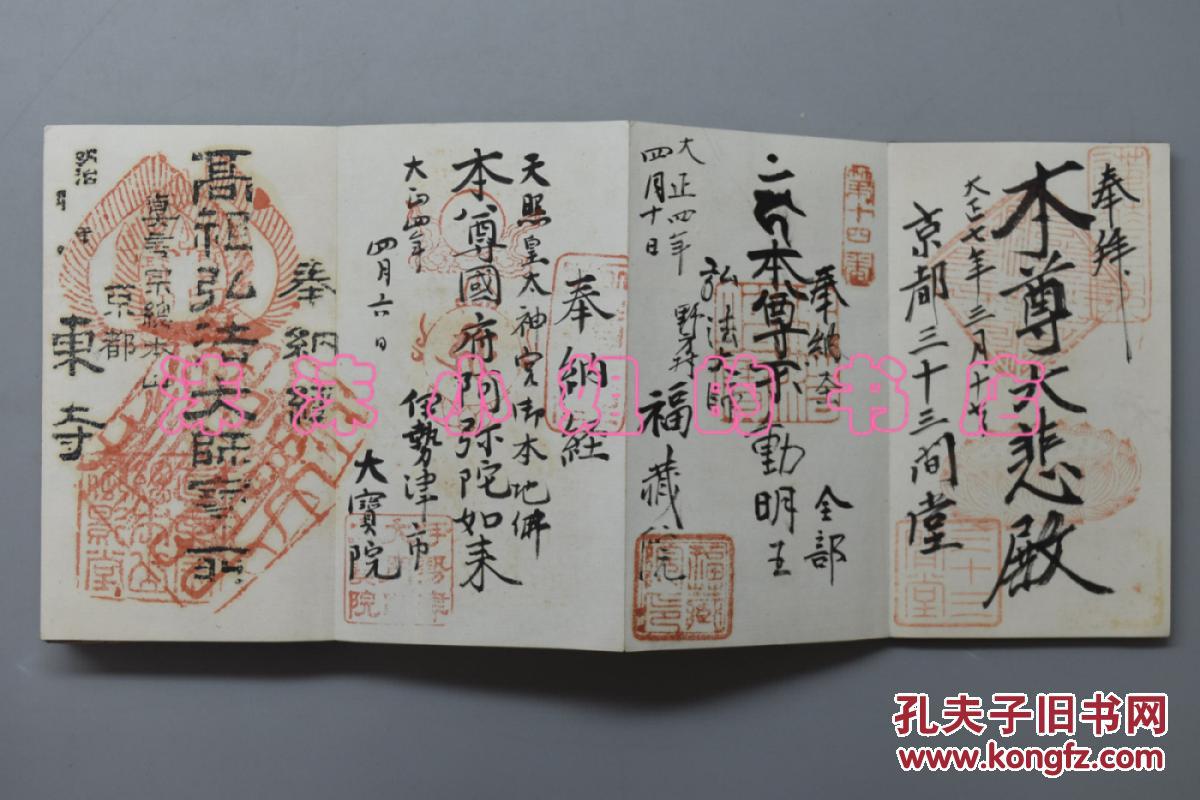 奉拜
本尊大悲殿
大正七年三月十七
京都三十三間堂
第十四番
奉納経
全部
本尊不動明王
弘法大師
大正四年
四月十日
野村
福藏院
福藏院印
奉納経
天照皇太神宮御本地佛
本尊國府阿弥陀如来
大正四年
四月六日
伊勢津市
大寶院
奉納経
高祖弘法大師
真言宗總本山
京都
東寺
明治
年
月
沫沫小姐的书店
孔夫子旧书网
www.kongfz.com